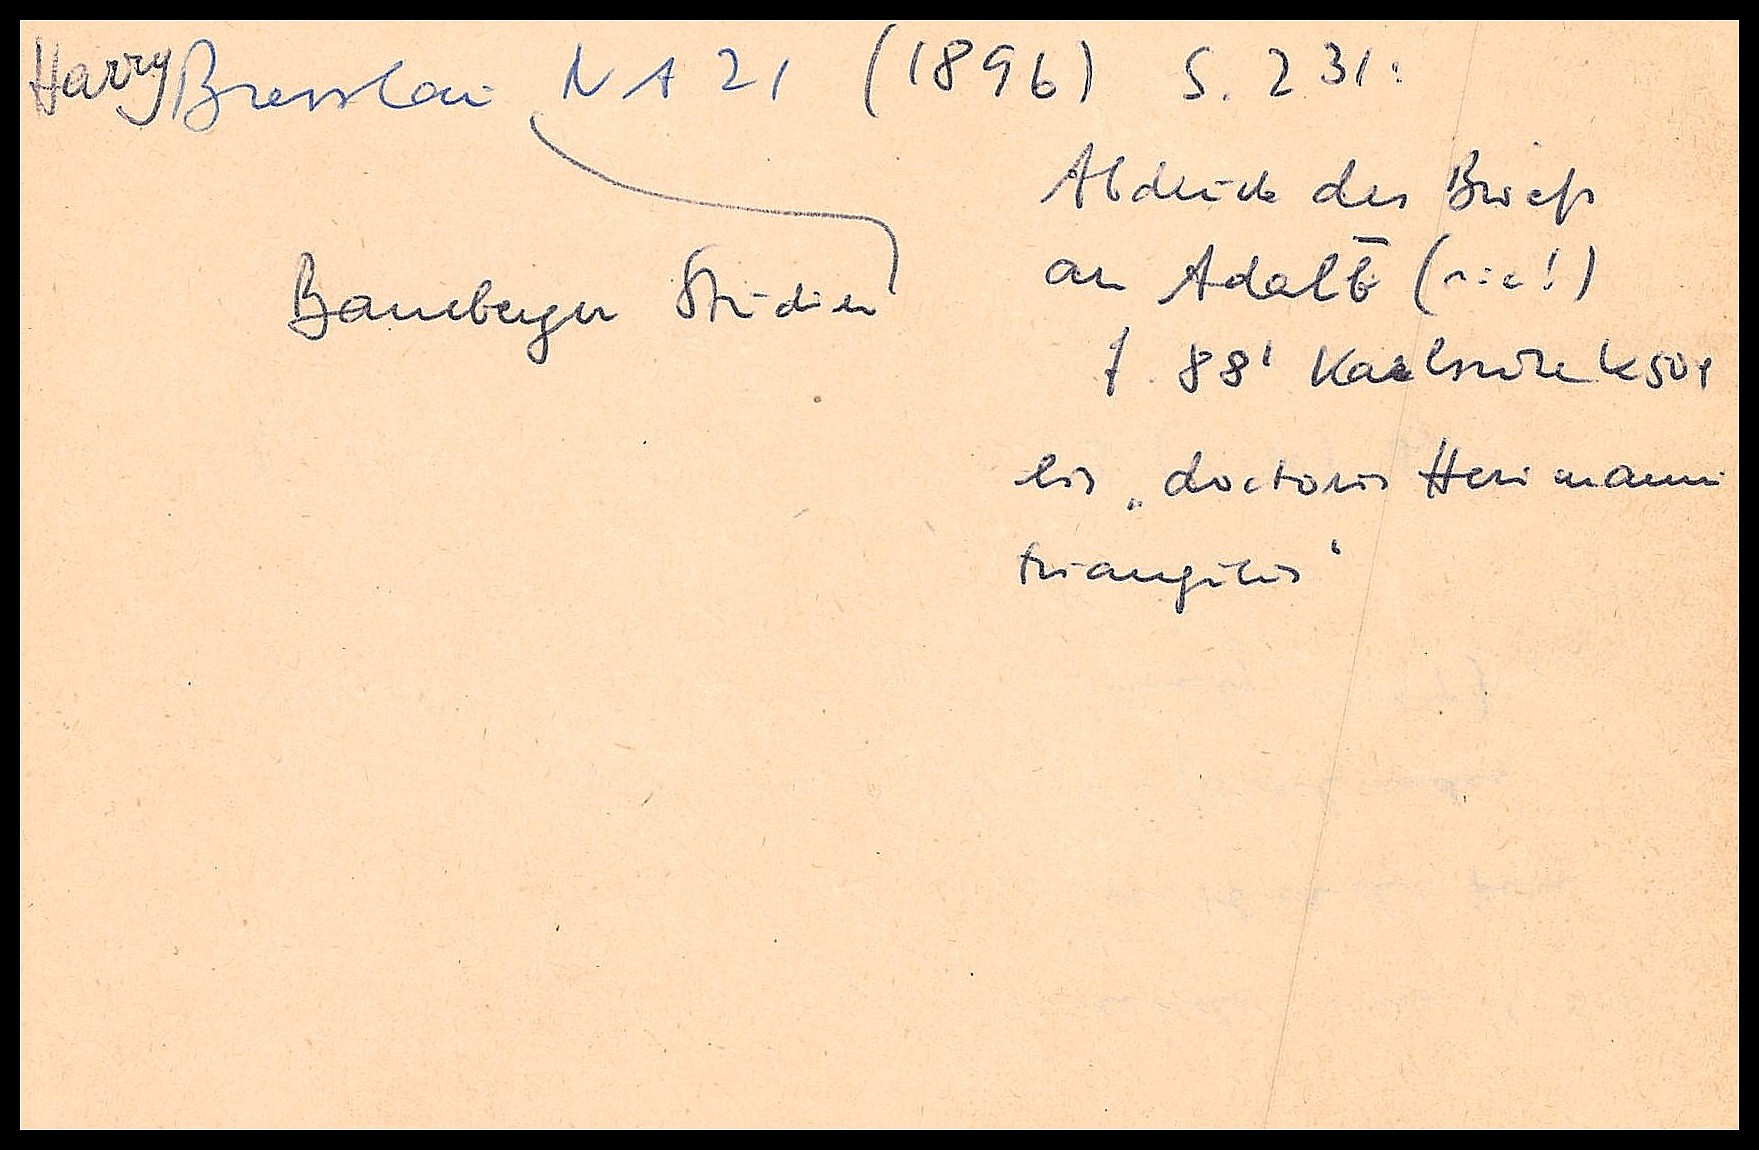 Harry Bresslau NA 21 (1896) S. 231:
Bamberger Studien
Abdruck des Briefs
an Adalb̄ (sic!)
f. 88' Karlsruhe K 504
bis „doctoris Herimanni
trianguli"